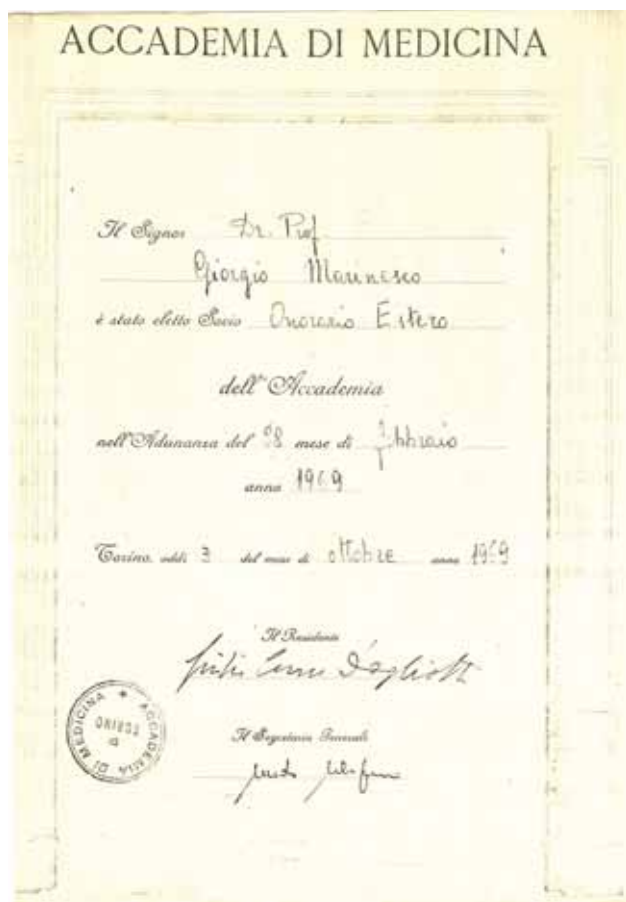 ACCADEMIA DI MEDICINA
Il Signor Dr. Prof
Giorgio Marinesco
è stato eletto Socio Onorario Estero
dell'Accademia
nell'Adunanza del 28 mese di febbraio
anno 1969
Torino, addì 3 del mese di ottobre anno 1969
Il Presidente
Dogliotti
Il Segretario Generale
ACCADEMIA DI MEDICINA
DI TORINO